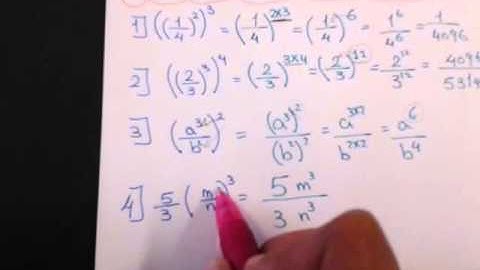 1] ((1/4)²)³ = (1/4)^2x3 = (1/4)^6 = 1⁶/4⁶ = 1/4096
2] ((2/3)³)⁴ = (2/3)^3x4 = (2/3)^12 = 2^12/3^12 =
3] (a³/b²)² = (a³)²/(b²)² = a^3x2/b^2x2 = a⁶/b⁴
4] 5/3 (m/n)³ = 5 m³/3 n³